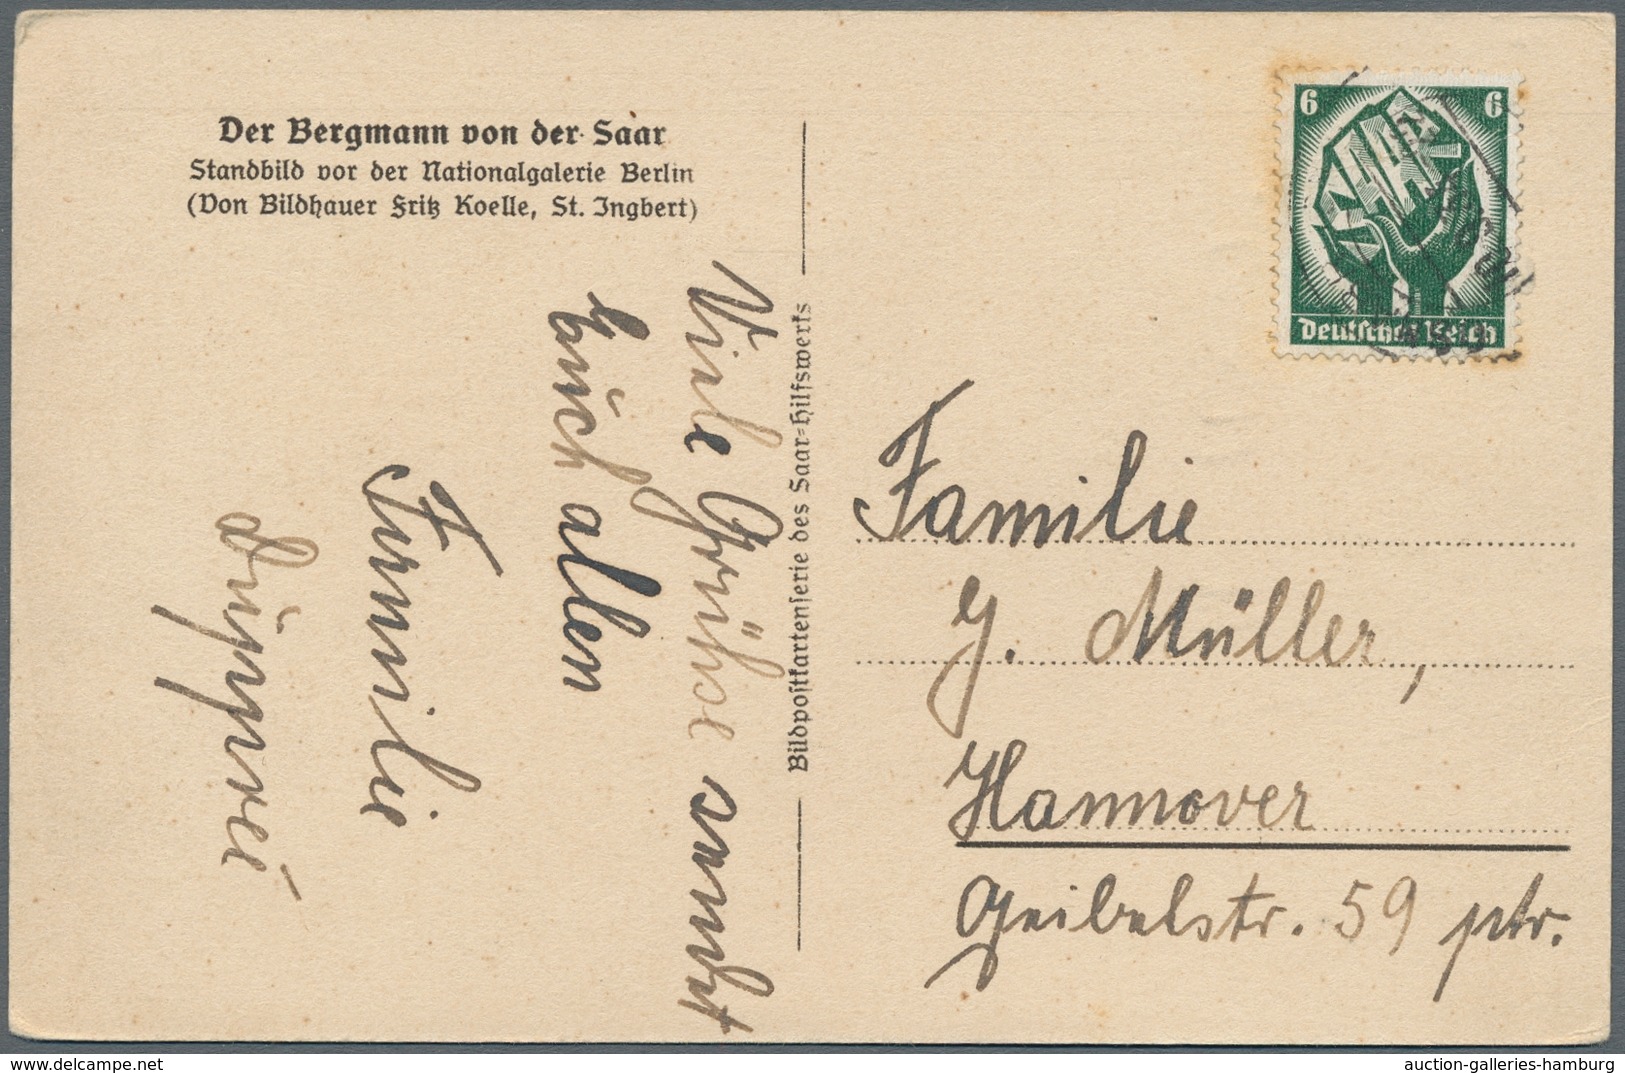 Der Bergmann von der Saar
Standbild vor der Nationalgalerie Berlin
(Von Bildhauer Fritz Koelle, St. Ingbert)
Viele Grüße sendet
Euch allen
Familie
Bildpostkartenserie des Saar-Hilfswerks
6 6
SAAR
Deutsches Reich
Familie
J. Müller,
Hannover
Geibelstr. 59 ptr.
delcampe.net
auction-galleries-hamburg